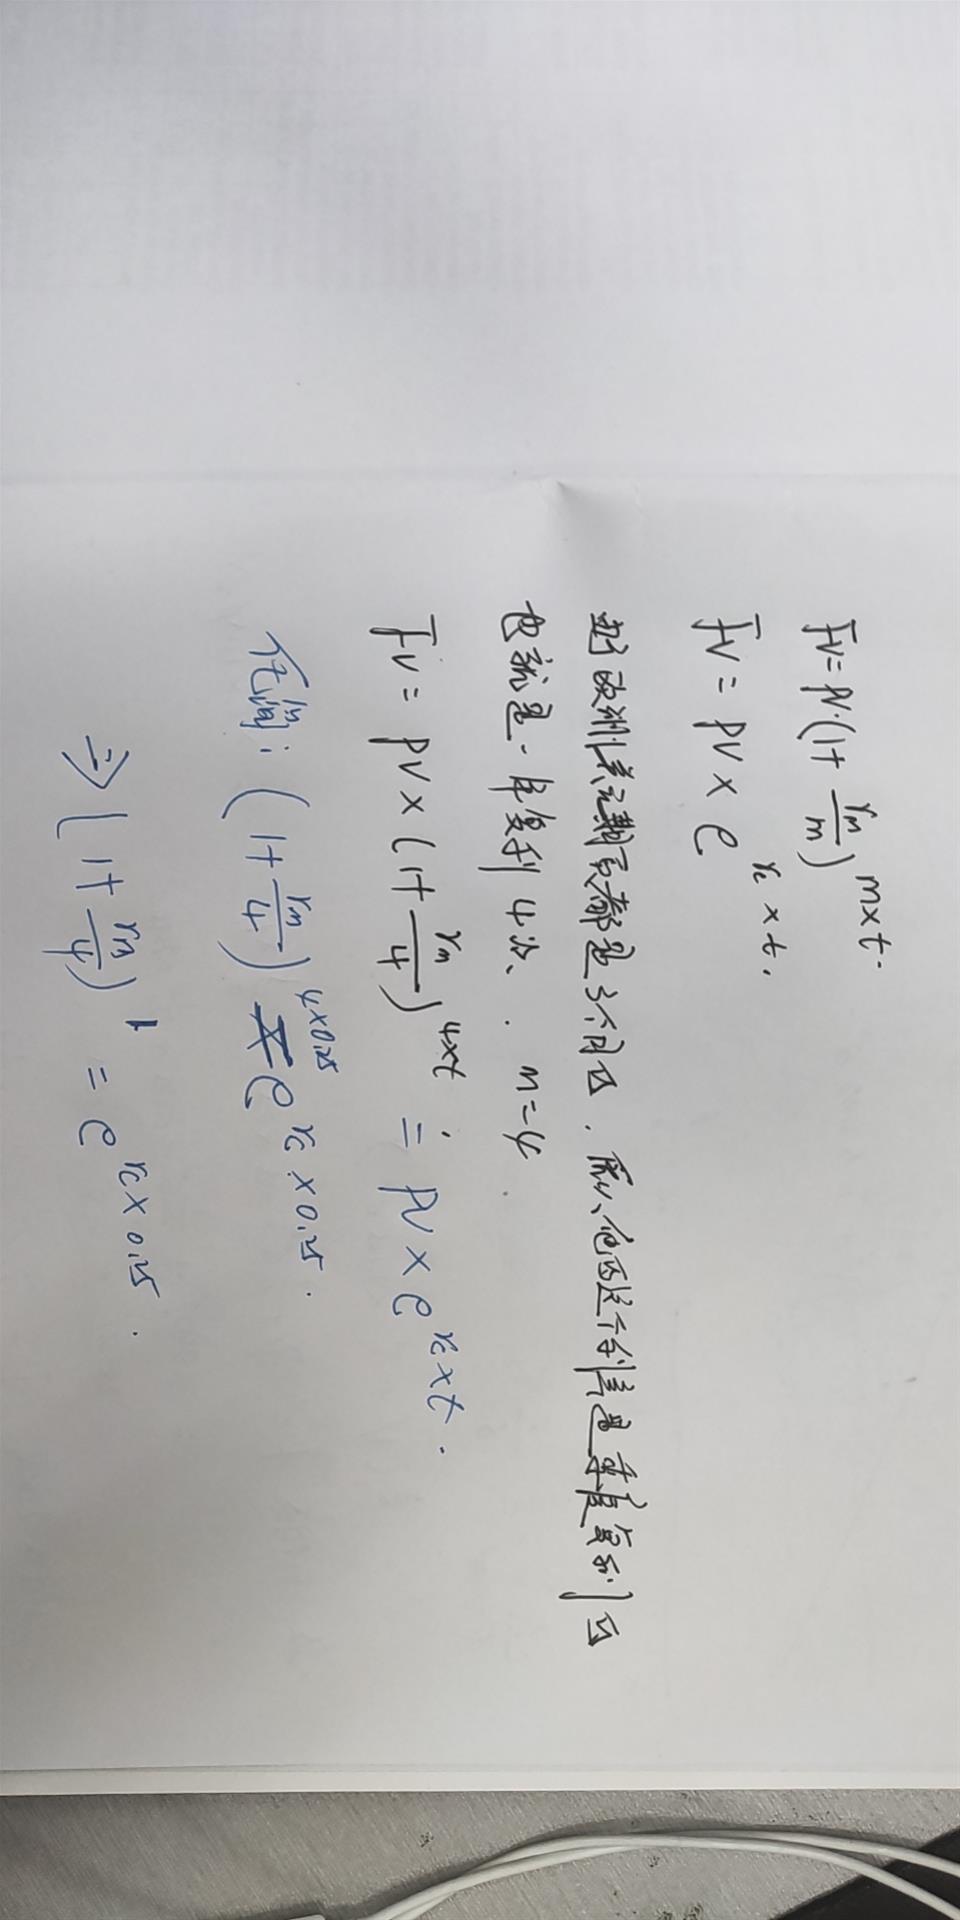 FV = PV·(1+ rm/m)^m×t.
FV = PV × e^rc×t.
由于欧洲美元期货都是3个月的，所以，它的这个利率是季度复利的
也就是一年复利4次、. m=4.
FV = PV × (1+ rm/4)^4×t = PV × e^rc×t.
(1+ rm/4)^4×0.25 = e^rc×0.25.
⇒ (1+ rm/4)^1 = e^rc×0.25.